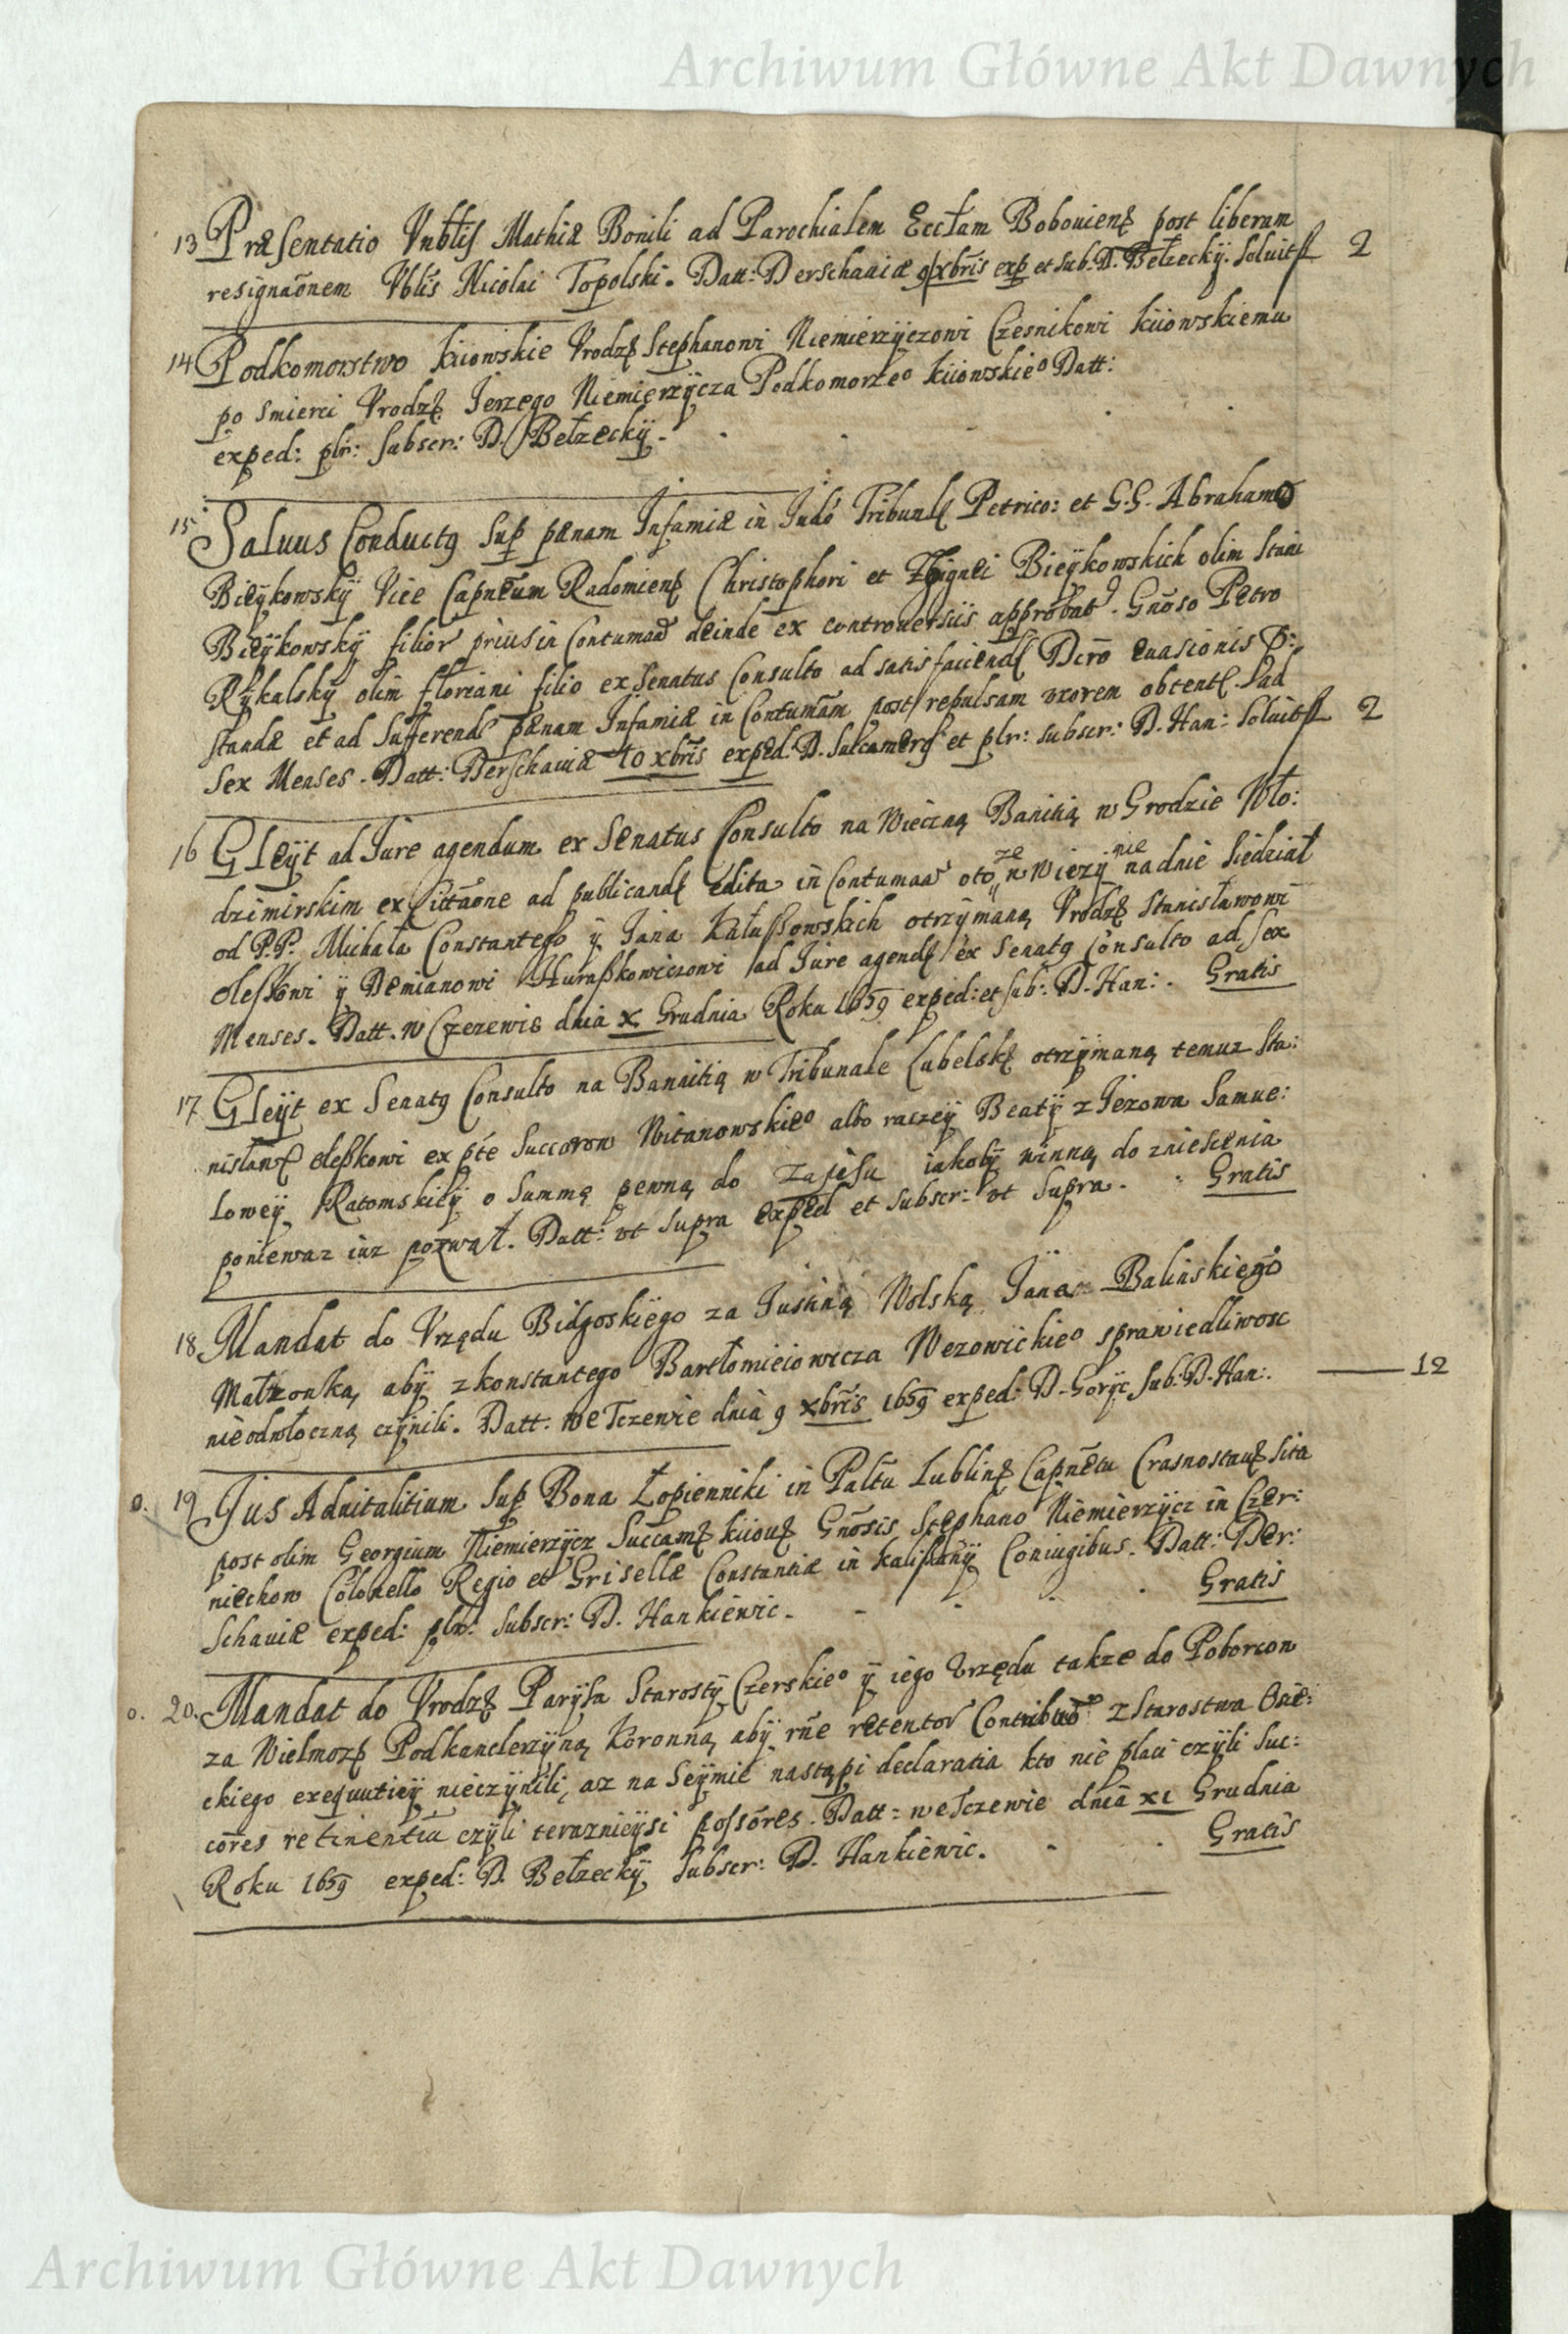 Archiwum Główne Akt Dawnych
13 Præsentatio Vnblis Mathiæ Bonili ad Parochialem Eccłam Bobouienȝ post liberam
resignaõnem Vblis Nicolai Topolski. Datt: Derschauiæ 9 xbris exp et sub. D. Bełzeckÿ. Soluit fl 2
14 Podkomorstwo kiiowskie Vrodzȝ Stephanowi Niemierzÿczowi Czesnikowi kiiowskiemu
po smierci Vrodzȝ Jerzego Niemierzÿcza Podkomorzeº kiiowskieº Datt:
exped: plr: subscr: D. Bełzeckÿ.
15 Saluus Conductꝰ sup pænam Infamiæ in Judõ Tribunlȝ Petrico: et G.G. Abrahamo
Bieÿkowskÿ Vice Capneum Radomienȝ Christophori et Zbignei Bieÿkowskich olim Stani
Bieÿkowskÿ filior prius in Contumaã deinde ex controuersiis approbat. Gnõso Petro
Rÿkalskÿ olim floriani filio ex Senatus Consulto ad satisfaciendȝ Dcrõ euasionis D:
standæ et ad sufferendȝ pænam Infamiæ in Contumãm post repulsam uxorem obtentȝ. Sad
sex Menses. Datt: Derschauiæ 10 xbris exped: D. Succamerȝ et plr: subscr: D. Han: Soluit fl 2
16 Gleÿt ad Jure agendum ex Senatus Consulto na Wieczną Banitią w Grodzie Wło:
dzimirskim ex Cittãone ad publicandȝ edita in Contumaã oto ze w Wiezÿ nie na dnie siedział
od P.P. Michała Constantego ÿ Jana Kałussowskich otrzÿmaną Vrodzȝ Stanisławowi
Olesskowi ÿ Demianowi Huraßkowiczowi ad Jure agendȝ ex Senatꝰ Consulto ad sex
Menses. Datt. w Czezewie dnia X Grudnia Roku 1659 exped: et sub: D. Han:. Gratis
17 Gleÿt ex Senatꝰ Consulto na Banitią w Tribunale Lubelskȝ otrzÿmaną temuz Sta:
nisławȝ Oleßkowi ex pte Succorow Witanowskieº albo raczeÿ Beatÿ z Jezowa Samue:
loweÿ Ratomskieÿ o Summę pewną do zapisu iakobÿ winną do zniesienia
poniewaz iuz pozwał. Datt: vt supra exped et subscr: vt supra. Gratis
18 Mandat do Vrzędu Bidgoskiego za Justiną Wolską Jana Balinskiego
Małzonką, abÿ z konstantego Bartłomieiowicza Wezowickieº sprawiedliwosc
nieodwłoczną czÿnili. Datt. we Tczewie dnia 9 xbris 1659 exped: D. Gorÿc sub: D. Han:. 12
o. 19 Jus Aduitalitium sup Bona Łopienniki in Palťu Lublinȝ Capnẽtu Crasnostauȝ sita
post olim Georgium Niemierzÿcz Succamȝ kiiouȝ Gnõsis Stephano Niemierzÿcz in Czer:
niechow Colonello Regio et Grisellæ Constantiæ in kalistanÿ Coniugibus. Datt: Der:
schauiæ exped: plr. subscr: D. Hankiewic. Gratis
o. 20. Mandat do Vrodzȝ Parÿsa Starostÿ Czerskieº ÿ iego Vrzędu takze do Poborcow
za Wielmozȝ Podkanclerzÿną koronną, abÿ rñe retentor Contributõ z Starostwa Osie:
ckiego exequutieÿ nieczÿnili, az na Seÿmie nastąpi declaratia kto nie płaci czÿli Suc:
cores retinentia czÿli teraznieÿsi possõres. Datt: we Tczewie dnia xi Grudnia
Roku 1659 exped: D. Bełzeckÿ subscr: D. Hankiewic. Gratis
Archiwum Główne Akt Dawnych